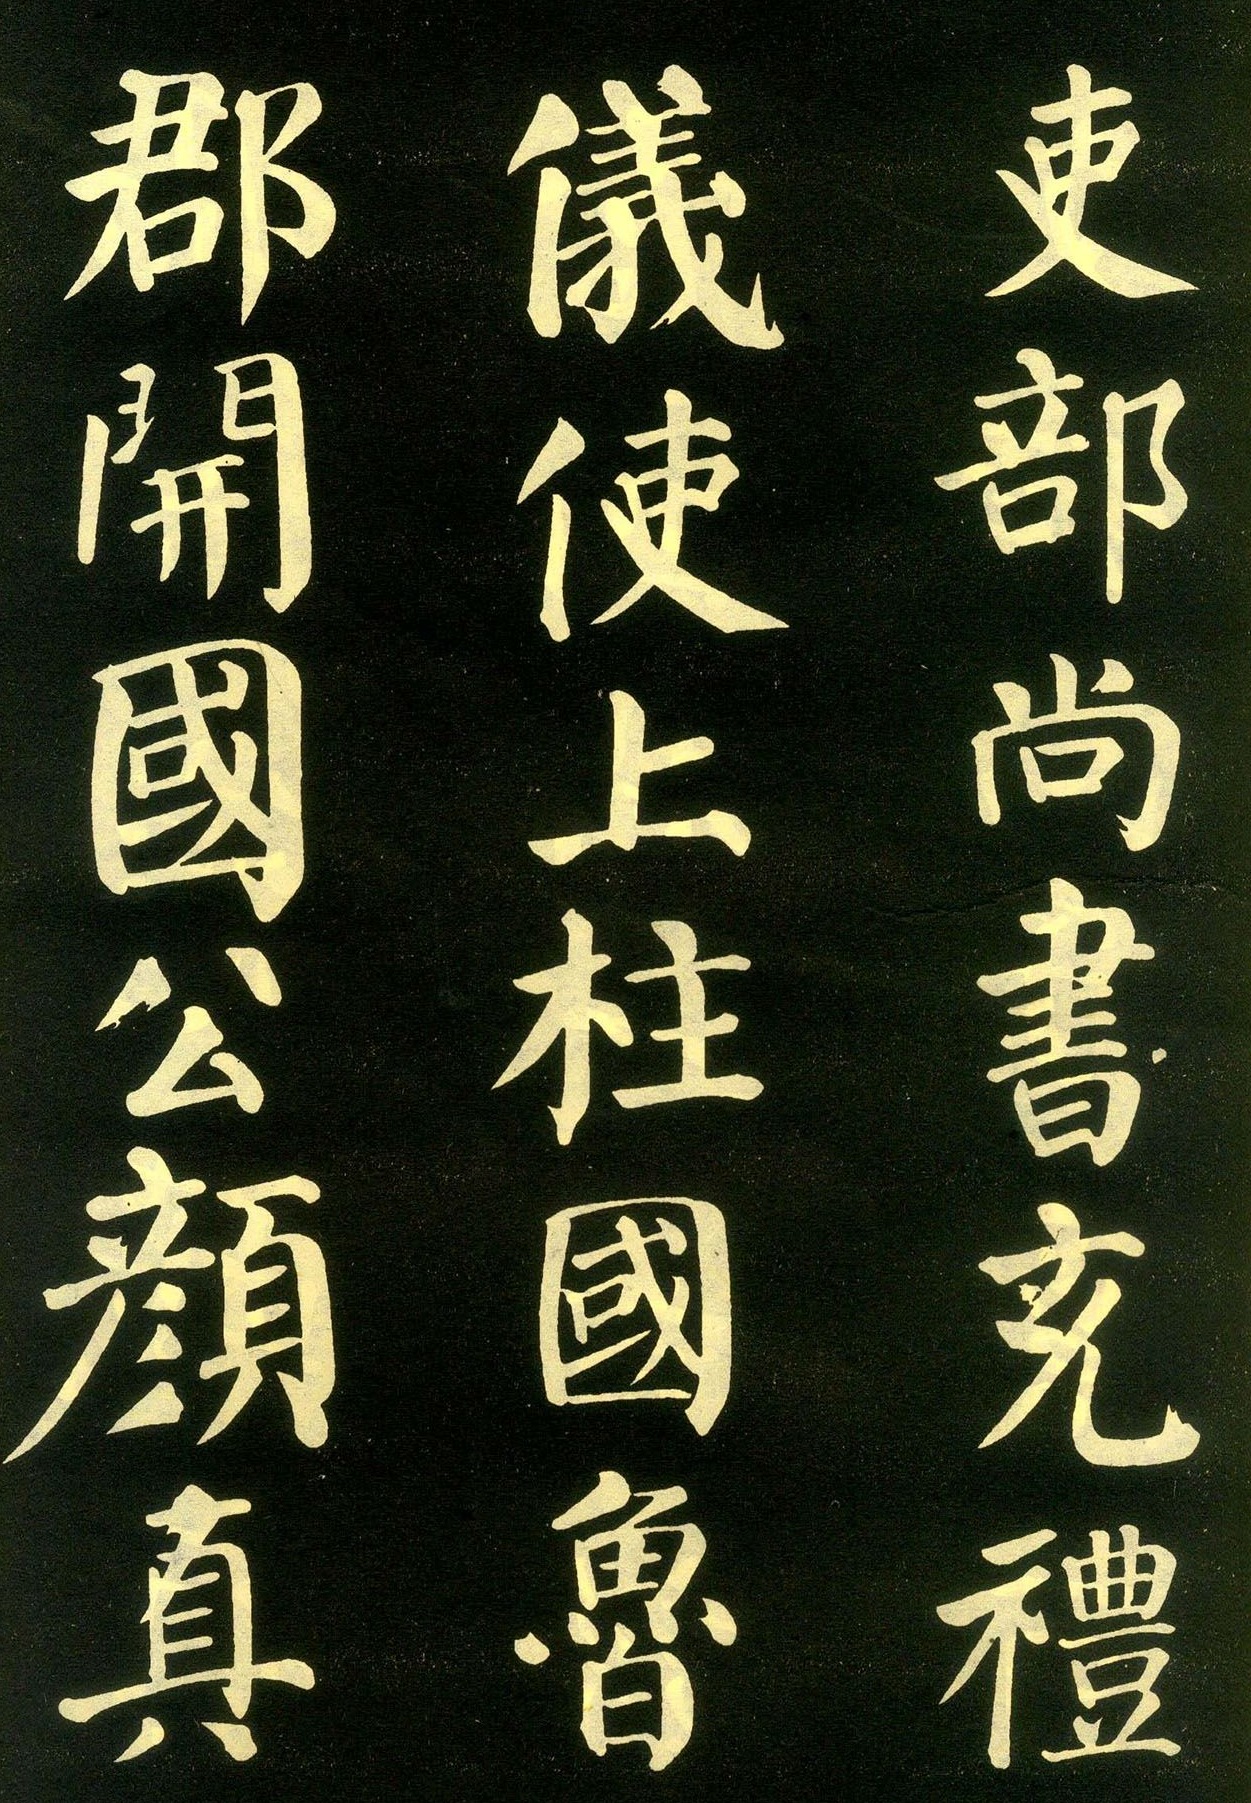 吏部尚書充禮
儀使上柱國魯
郡開國公顏真